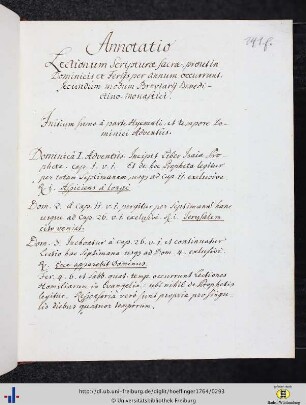 Annotatio
Lectionum Scripturæ sacræ, prout in
Dominicis et Feriis per annum occurrunt,
secundum modum Breviarij Benedi-
ctino-monastici.
Initium sumo à parte Hyemali, et tempore Do-
minici Adventûs.
Dominica I. Adventûs. Incipit Liber Isaiæ Pro-
phetæ. cap. 1. v. 1. Et de hoc Propheta legitur
per totam Septimanam, usq; ad cap. 11. exclusivè
℟. 1. Aspiciens à longè.
Dom. 2. à cap. 11. v. 1. pergitur per Septimanam hanc
usque ad cap. 26. v. 1. exclusivè. ℟. 1. Jerusalem
citò veniet.
Dom. 3. Inchoatur à cap. 26. v. 1. et continuatur
Lectio hac Septimana usq; ad Dom. 4. exclusivè.
℟. Ecce apparebit Dominus.
Fer. 4. 6. et Sabb. quat. temp. occurrunt Lectiones
Homiliarum in Evangelia, ubi nihil de Prophetis
legitur. Responsoria verò sunt propria pro singu-
lis diebus quatuor temporum.
http://dl.ub.uni-freiburg.de/diglit/hoeffinger1764/0293
© Universitätsbibliothek Freiburg